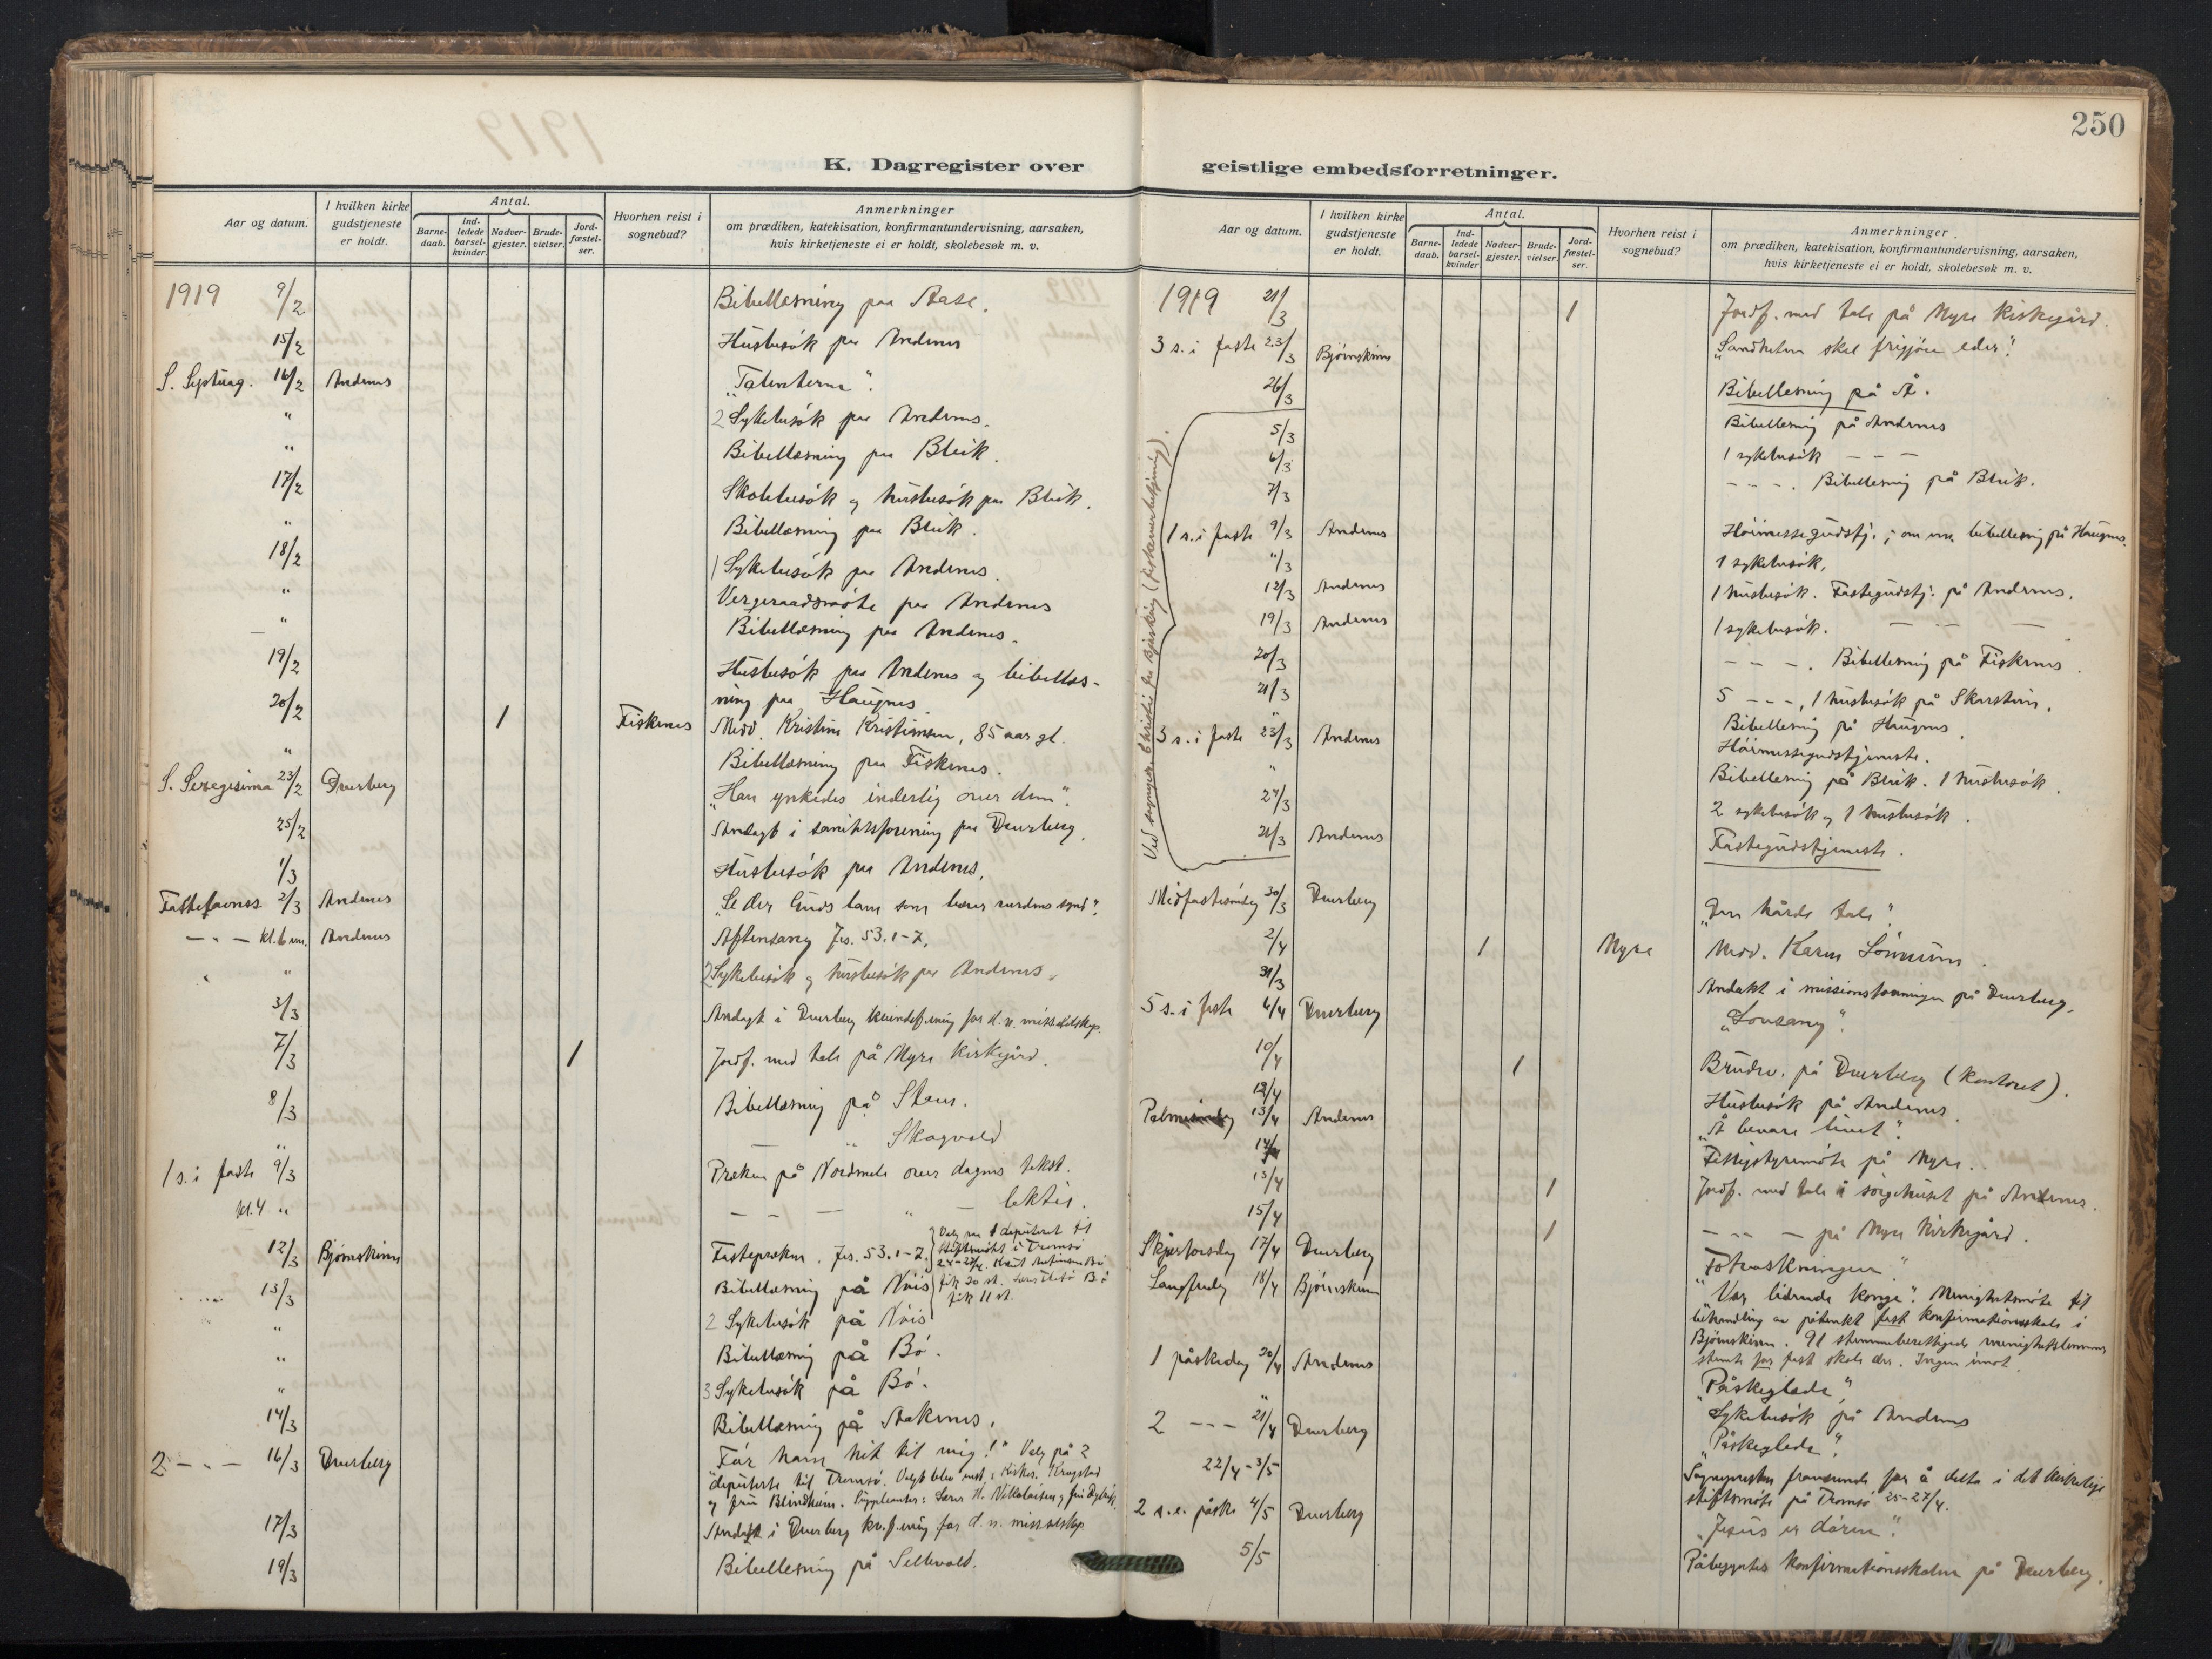 1919
K. Dagregister over
Aar og datum.
I hvilken kirke gudstjeneste er holdt.
Antal.
Barne-daab.
Ind-ledede barsel-kvinder.
Nadver-gjester.
Brude-vielser.
Jord-fæstel-ser.
Hvorhen reist i sognebud?
Anmerkninger
om prædiken, katekisation, konfirmantundervisning, aarsaken,
hvis kirketjeneste ei er holdt, skolebesøk m. v.
1919 9/2 Bibellæsning paa Aase.
15/2 Husbesøk paa Andenes
S. Septuag. 16/2 Andenes "Talenterne".
" 2 Sykebesøk paa Andenes.
" Bibellæsning paa Bleik.
17/2 Skolebesøk og husbesøk paa Bleik.
" Bibellæsning paa Bleik.
18/2 1 Sykebesøk paa Andenes.
" Vergeraadsmøte paa Andenes
" Bibellæsning paa Andenes.
19/2 Husbesøk paa Andenes og bibellæs-
ning paa Haugnes
20/2 1 Fiskenes Nedv. Kristine Kristiansen, 85 aar gl.
" Bibellæsning paa Fiskenes.
S. Sexagesima 23/2 Dverberg "Han ynkedes inderlig over dem".
25/2 Andagt i sanitetsforening paa Dverberg.
1/3 Husbesøk paa Andenes.
Fastelavns 2/3 Andenes "Se der Guds lam som bærer verdens synd".
- " - kl. 6 em. Andenes Aftensang Jes. 53.1-7.
" 2 Sykebesøk og husbesøk paa Andenes.
3/3 Andagt i Dverberg kvindef.ening for d. n. misselskap.
7/3 1 Jordf. med tale på Myre kirkegård.
8/3 Bibellæsning på Stave.
" — " Skogvold
1 s. i faste 9/3 Præken på Nordmela over dagens tekst.
kl. 4 " — — — " — lektie.
12/3 Bjørnskinn Fastepræken. Jes. 53.1-7. Valg paa 1 deputeret til
stiftsmøtet i Tromsø
13/3 Bibellæsning på Nöis
fik 11 st.
" 2 Sykebesøk på Nöis
" Bibellæsning på Bö.
" 3 Sykebesøk på Bö.
14/3 Bibellæsning på Åknes.
2 - " - 16/3 Dverberg "Før ham hit til mig!" Valg på 2
deputerte til Tromsø. Valgt blev Krogstad
og fru Blindheim. Suppleanter: Lærer H. Nikolaisen og fru
17/3 Andagt i Dverberg kv.f.ening for d. n. misselskap
19/3 Bibellesning på Sellevold.
250
geistlige embedsforretninger.
Aar og datum.
I hvilken kirke gudstjeneste er holdt.
Antal.
Barne-daab.
Ind-ledede barsel-kvinder.
Nadver-gjester.
Brude-vielser.
Jord-fæstel-ser.
Hvorhen reist i sognebud?
Anmerkninger
om prædiken, katekisation, konfirmantundervisning, aarsaken,
hvis kirketjeneste ei er holdt, skolebesøk m. v.
1919 21/3 1 Jordf. med tale på Myre kirkegård.
3 s. i faste 23/3 Bjørnskinn "Sandheten skal frigjøre eder".
26/3 Bibellesning på Å.
5/3 Bibellesning på Andenes
6/3 1 sykebesøk - - -
7/3 - - - . Bibellesning på Bleik.
1 s. i faste 9/3 Andenes Höimessegudstj.; om em. bibellesning på Haugnes.
"/3 1 sykebesök,
12/3 Andenes 1 husbesök. Fastegudstj. på Andenes.
19/3 Andenes 1 sykebesök. — — —
20/3 - - - . Bibellesning på Fiskenes.
21/3 5 - - -, 1 husbesök på Skarstein.
" Bibellesning på Haugnes.
3 s. i faste 23/3 Andenes Höimessegudstjeneste.
" Bibellesning på Bleik. 1 husbesök.
24/3 2 sykebesök og 1 husbesök.
26/3 Andenes Fastegudstjeneste.
Midfastesöndag 30/3 Dverberg "Den hårde tale".
2/4 1 Myre Nedv. Karen
31/3 Andakt i missionsforeningen på Dverberg.
5 s. i faste 6/4 Dverberg "Lovsang".
10/4 1 Brudev. på Dverberg (kontoret).
12/4 Husbesök på Andenes
Palmesöndag 13/4 Andenes "Å bevare livet".
14/4 Fattigstyremöte på Myre.
13/4 1 Jordf. med tale i sörgehuset på Andenes.
15/4 1 - - - på Myre kirkegård.
Skjærtorsdag 17/4 Dverberg "Fotvaskningen".
Langfredag 18/4 Bjørnskinn "Vor lidende konge". Menighetsmöte til
behandling av påtenkt fast konfirmationsskole i
Bjørnskinn. 91 stemmeberettigede menighetslemmer
stemte for fast skole der. Ingen imot.
1 påskedag 20/4 Andenes "Påskeglede".
" Sykebesök på Andenes
2 - - - 21/4 Dverberg "Påskeglede".
22/4 - 3/5 Sogneprest fraværende for å delta i det kirkelige
stiftsmöte på Tromsö 25-27/4.
2 s. e. påske 4/5 Dverberg "Jesus er dören".
5/5 Påbegyntes konfirmationsskolen på Dverberg.